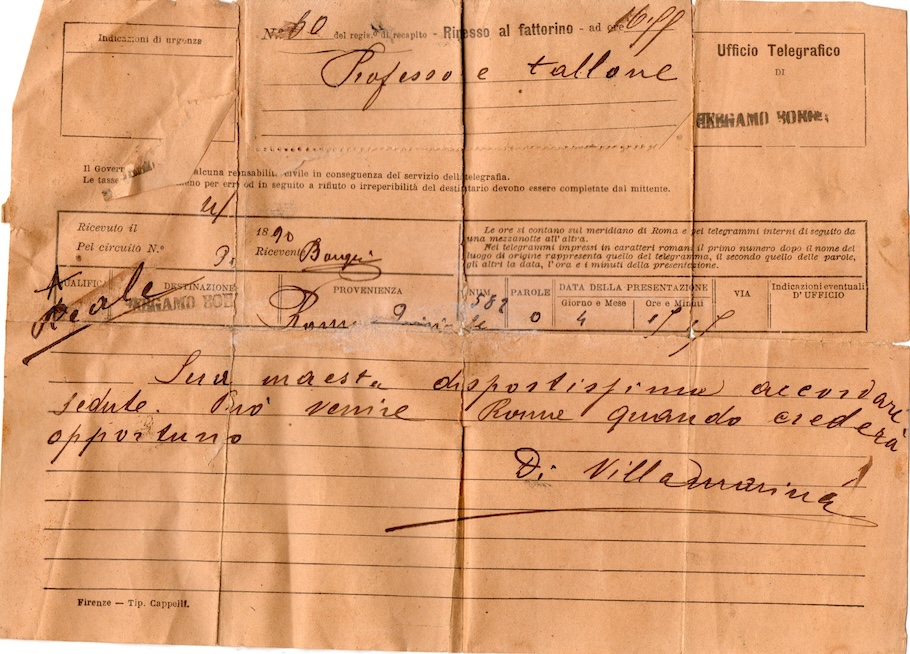 Indicazioni di urgenza
N.° 60 del regis.° di recapito - Rimesso al fattorino - ad ore
Professore Tallone
Ufficio Telegrafico
DI
BERGAMO BORG
Il Gover alcuna responsabilità civile in conseguenza del servizio della telegrafia.
Le tasse meno per errori od in seguito a rifiuto o irreperibilità del destinatario devono essere completate dal mittente.
Ricevuto il 4/ 1890
Pel circuito N.° Ricevente
Le ore si contano sul meridiano di Roma e pei telegrammi interni di seguito da
una mezzanotte all'altra.
Nei telegrammi impressi in caratteri romani il primo numero dopo il nome del
luogo di origine rappresenta quello del telegramma, il secondo quello delle parole,
gli altri la data, l'ora e i minuti della presentazione.
QUALIFICA DESTINAZIONE PROVENIENZA NUM. PAROLE DATA DELLA PRESENTAZIONE VIA Indicazioni eventuali
D'UFFICIO
Giorno e Mese Ore e Minuti
Reale BERGAMO BOR Roma 582 4
Sua maestà dispostissima accordari
sedute. Può venire Roma quando crederà
opportuno
Di Villamarina
Firenze — Tip. Cappelli.